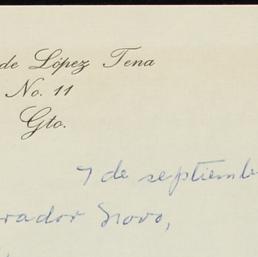 de López Tena
No. 11
Gto.
7 de septiembre
rador Novo,